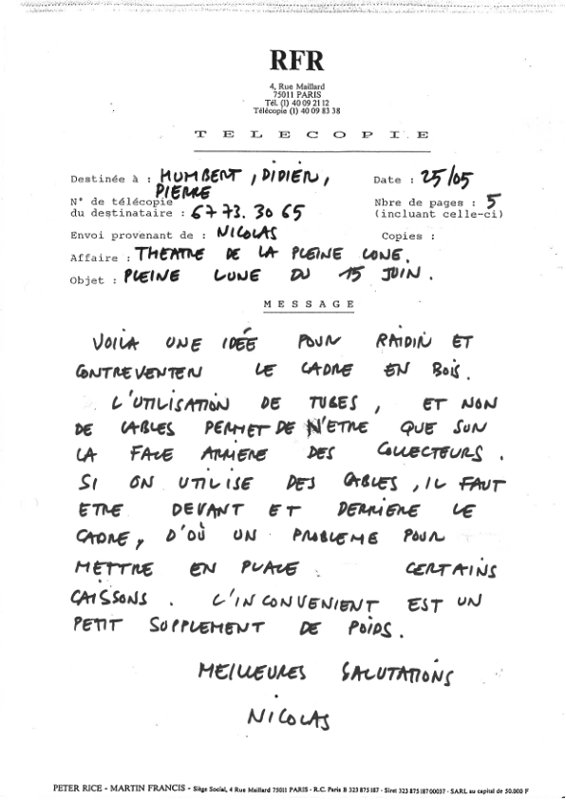 RFR
4, Rue Maillard
75011 PARIS
Tél. (1) 40 09 21 12
Télécopie (1) 40 09 83 38
TELECOPIE
Destinée à : HUMBERT, DIDIER, PIERRE
Date : 25/05
N° de télécopie du destinataire : 67 73. 30 65
Nbre de pages : 5
(incluant celle-ci)
Envoi provenant de : NICOLAS
Copies :
Affaire : THEATRE DE LA PLEINE LUNE.
Objet : PLEINE LUNE DU 15 JUIN.
MESSAGE
VOILA UNE IDÉE POUR RAIDIR ET
CONTREVENTER LE CADRE EN BOIS.
L'UTILISATION DE TUBES, ET NON
DE CABLES PERMET DE N'ETRE QUE SUR
LA FACE ARRIERE DES COLLECTEURS.
SI ON UTILISE DES CABLES, IL FAUT
ETRE DEVANT ET DERRIERE LE
CADRE, D'OÙ UN PROBLEME POUR
METTRE EN PLACE CERTAINS
CAISSONS. L'INCONVENIENT EST UN
PETIT SUPPLEMENT DE POIDS.
MEILLEURES SALUTATIONS
NICOLAS
PETER RICE - MARTIN FRANCIS - Siège Social, 4 Rue Maillard 75011 PARIS - R.C. Paris B 323 875 187 - Siret 323 875 187 00037 - SARL au capital de 50.000 F